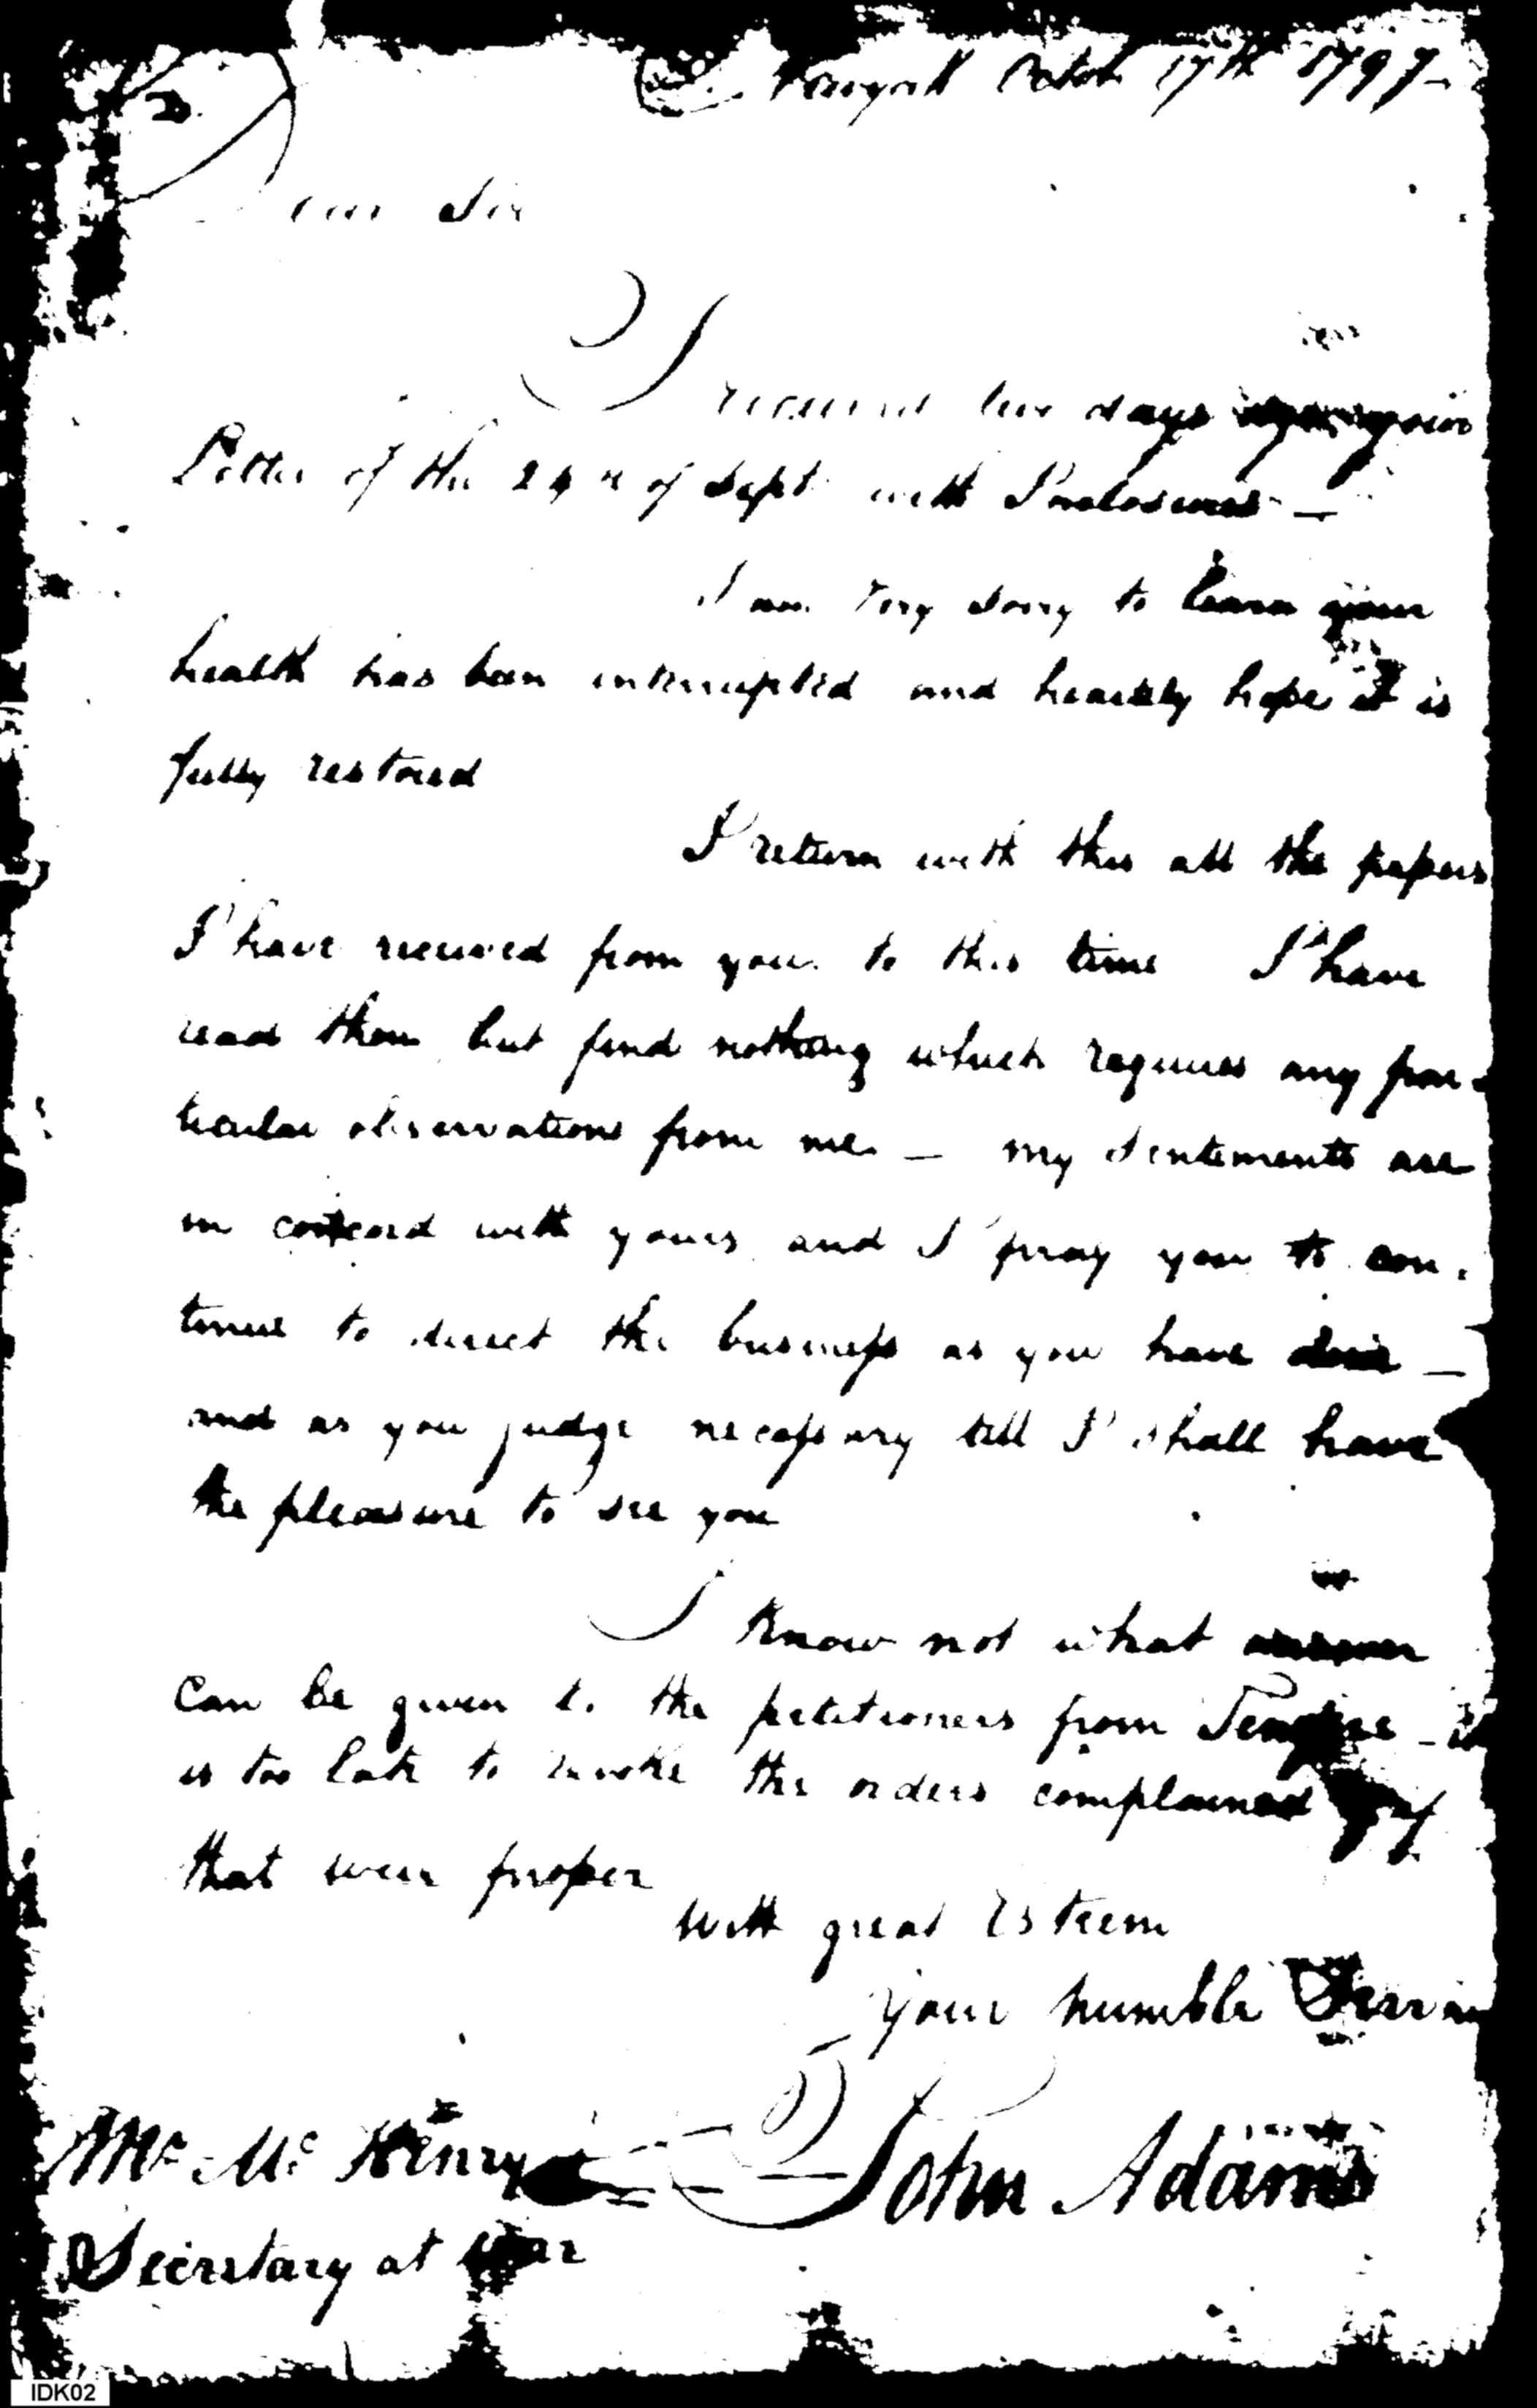 17th 1797
Dear Sir
I received two days your
Letter of the 24th of Sept. with Inclosures —
I am very sorry to learn your
health has been interrupted and heartily hope it is
fully restored
I return with this all the papers
I have received from you to this time I have
read them but find nothing which requires any par-
ticular observations from me — my sentiments are
in concord with yours and I pray you to con-
tinue to direct the business as you have done —
and as you judge necessary till I shall have
the pleasure to see you
I know not what answer
can be given to the petitioners from — it
is too late to revoke the orders complained of
that were proper
With great Esteem
your humble Servan
John Adams
Mr. Mc Henry
Secretary at War
IDK02